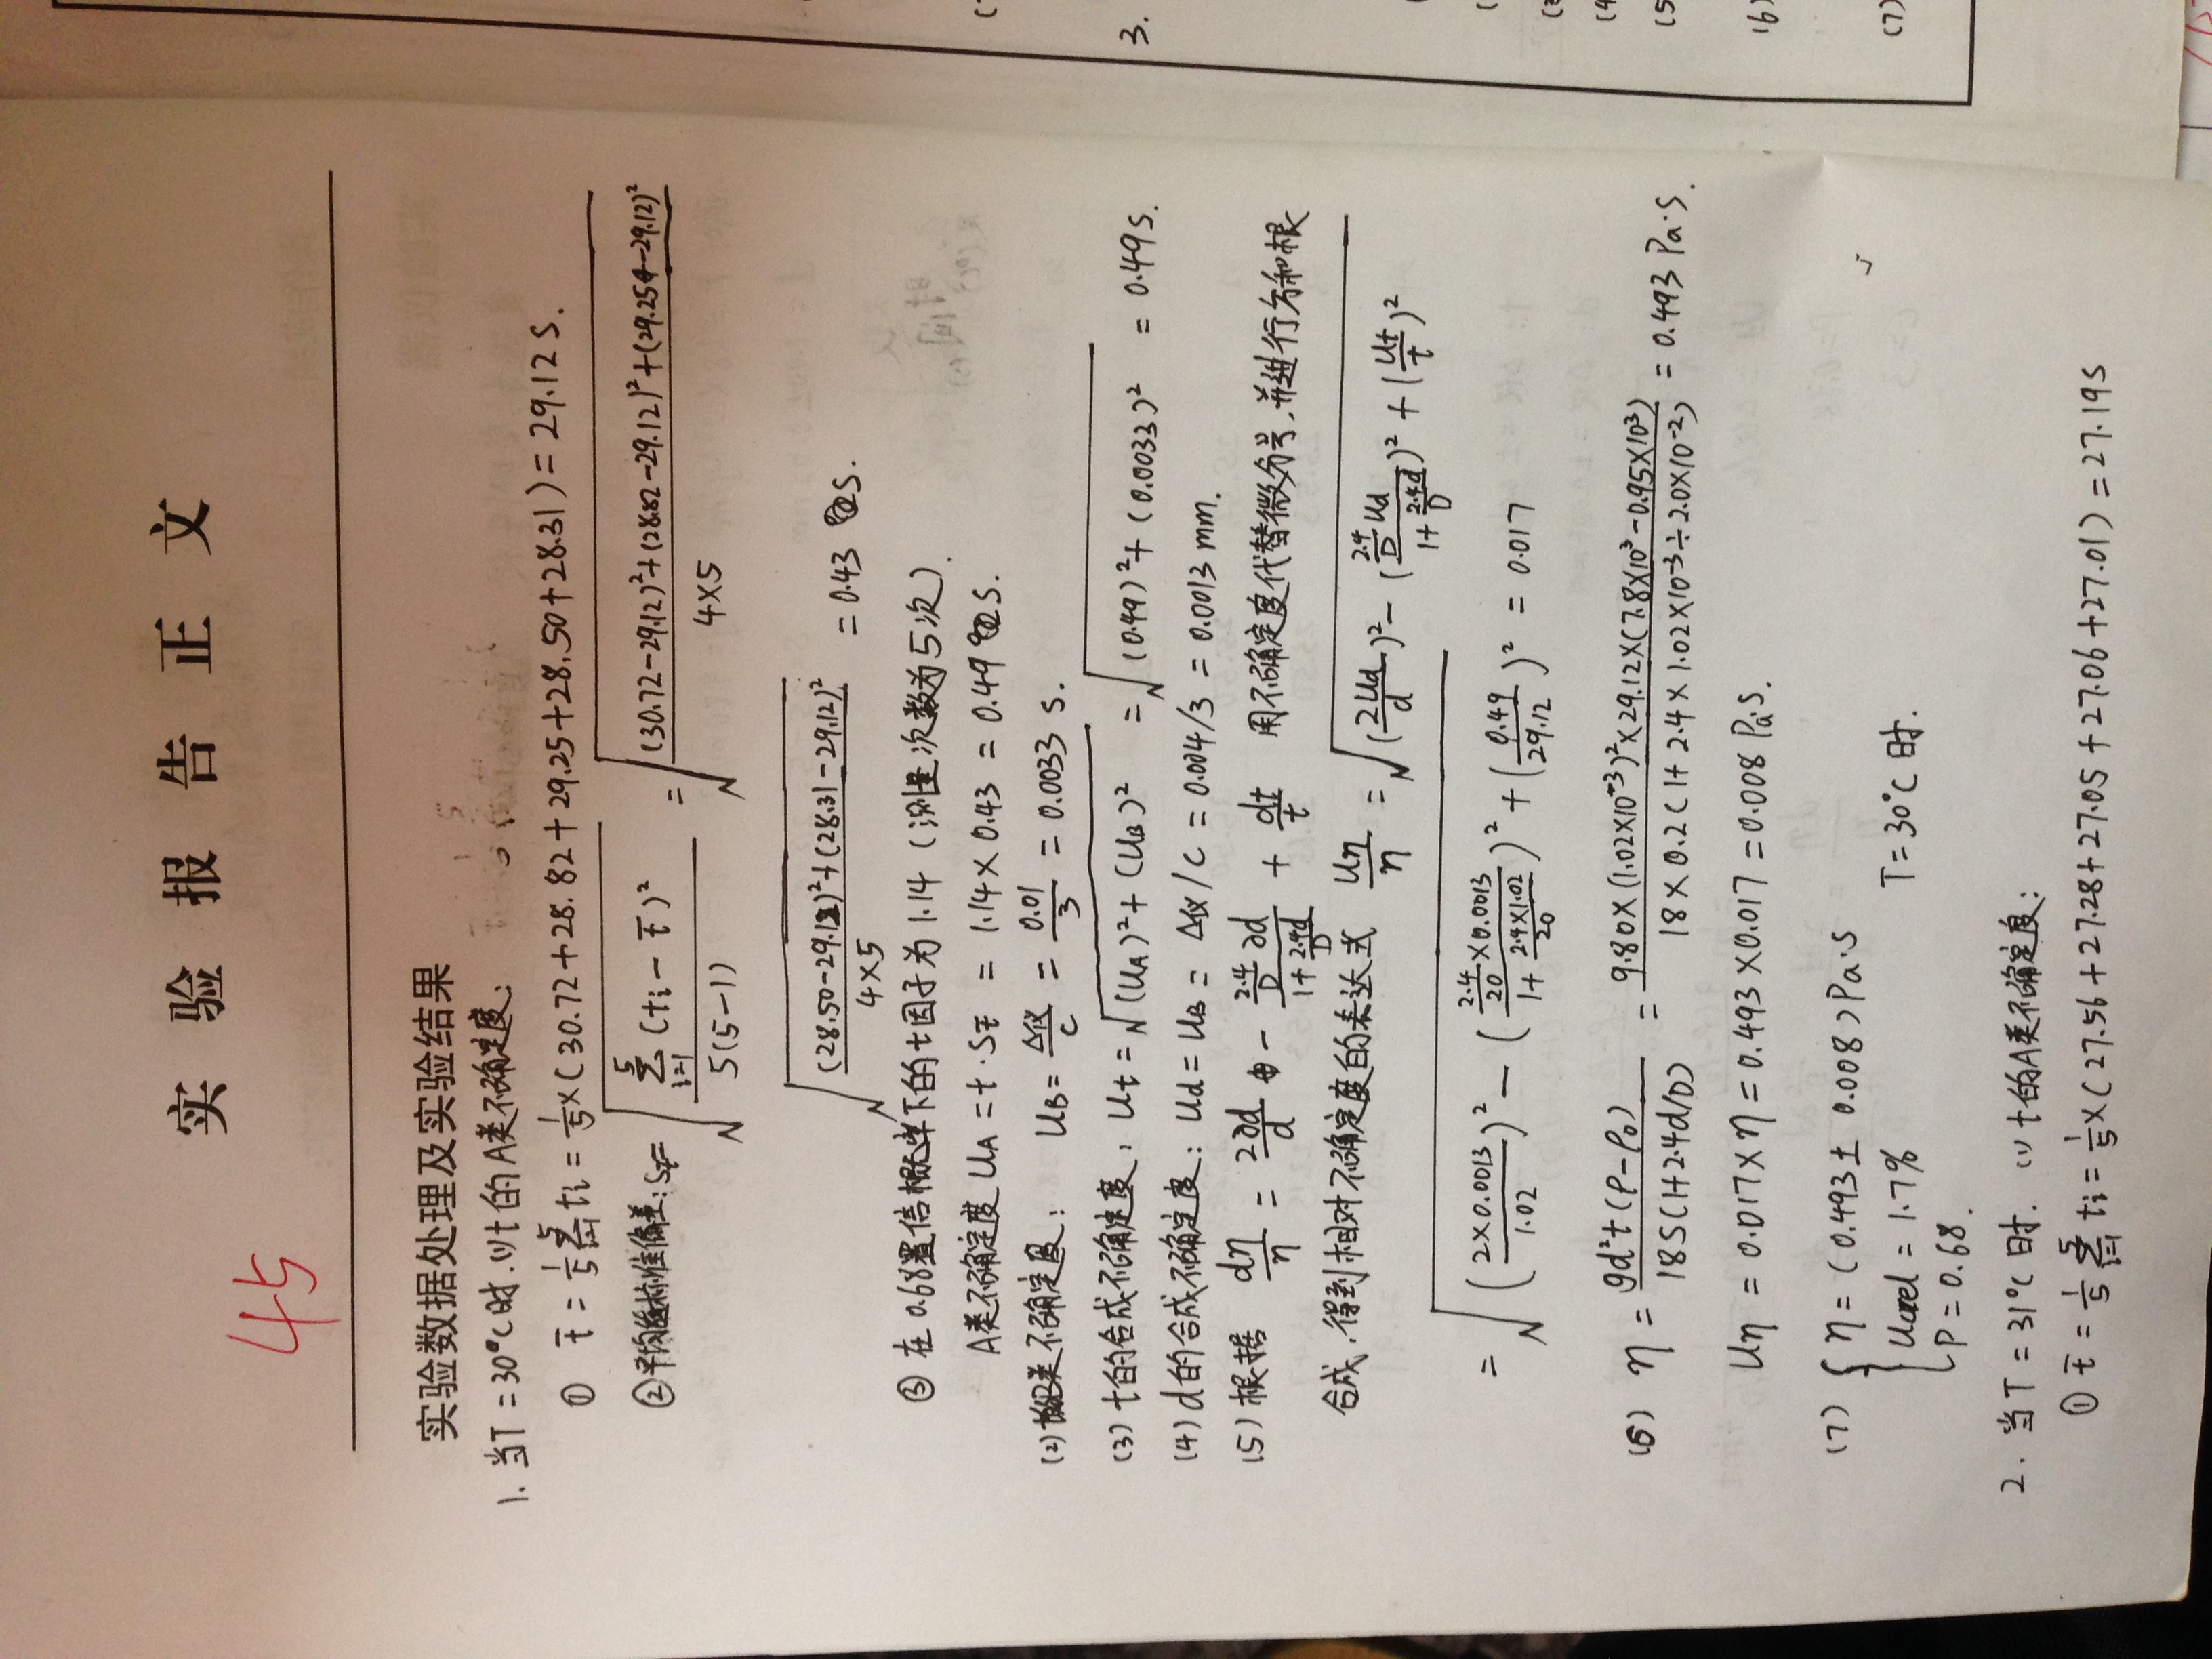 实验报告正文
45
实验数据处理及实验结果
1. 当T=30°C时. (1) t的A类不确定度:
① t̄ = 1/5 Σ(i=1→5) ti = 1/5×(30.72+28.82+29.25+28.50+28.31) = 29.12 s.
②平均值标准偏差: St̄ = √(Σ(i=1→5)(ti-t̄)² / 5(5-1)) = √((30.72-29.12)²+(28.82-29.12)²+(29.25-29.12)² / 4×5
√((28.50-29.12)²+(28.31-29.12)² / 4×5 = 0.43 s.
③ 在0.68置信概率下的t因子为1.14 (测量次数为5次).
A类不确定度 UA = t·St̄ = 1.14×0.43 = 0.49 s.
(2) B类不确定度: UB = Δ仪/C = 0.01/3 = 0.0033 s.
(3) t的合成不确定度: Ut = √((UA)²+(UB)²) = √((0.49)²+(0.0033)²) = 0.49 s.
(4) d的合成不确定度: Ud = UB = Δ仪/C = 0.004/3 = 0.0013 mm.
(5) 根据 dη/η = 2∂d/d - (2.4/D ∂d)/(1+2.4d/D) + dt/t 用不确定度代替微分号, 并进行方和根
合成, 得到相对不确定度的表达式 Uη/η = √((2Ud/d)² - ((2.4/D Ud)/(1+2.4d/D))² + (Ut/t)²)
= √((2×0.0013/1.02)² - ((2.4/20×0.0013)/(1+2.4×1.02/20))² + (0.49/29.12)²) = 0.017
(6) η = gd²t(ρ-ρ0) / 18S(1+2.4d/D) = 9.80×(1.02×10⁻³)²×29.12×(7.8×10³-0.95×10³) / 18×0.2(1+2.4×1.02×10⁻³÷2.0×10⁻²) = 0.493 Pa·S.
Uη = 0.017×η = 0.493×0.017 = 0.008 Pa·S.
(7) { η = (0.493±0.008) Pa·S
Uηrel = 1.7% T=30°C时.
P = 0.68.
2. 当T=31°C时. (1) t的A类不确定度:
① t̄ = 1/5 Σ(i=1→5) ti = 1/5×(27.56+27.28+27.05+27.06+27.01) = 27.19s
3.
(5
(4
(
(6)
(7)